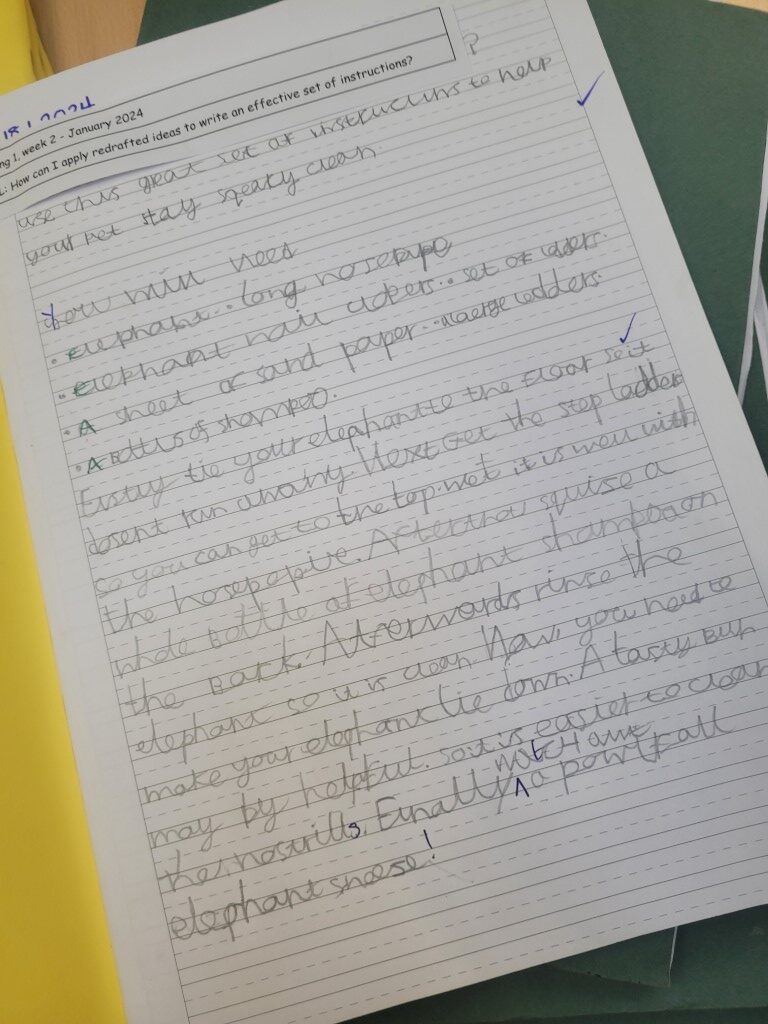 18.1.2024
ng 1, week 2 - January 2024
L: How can I apply redrafted ideas to write an effective set of instructions?
?
use this great set of to help
your pet stay sqeaky clean.
You will need
• Elephant.. • Long
• Elephant hair • set of
• A sheet of sand paper
• A of shampoo.
tie your elephant to the so it
dosent ran away. Next Get the step ladder
so you can get to the top. wet it is well with
the hosepepipe. After that squise a
whole bottle of elephant shampoo on
the back. Afterwards rinse the
elephant so it is clean. Now, you need to
make your elephant lie down. A tasty bun
may by helpful. so it is easier to clean
the nostrills. Finally, a powrfall
watch out
elephant sneese!